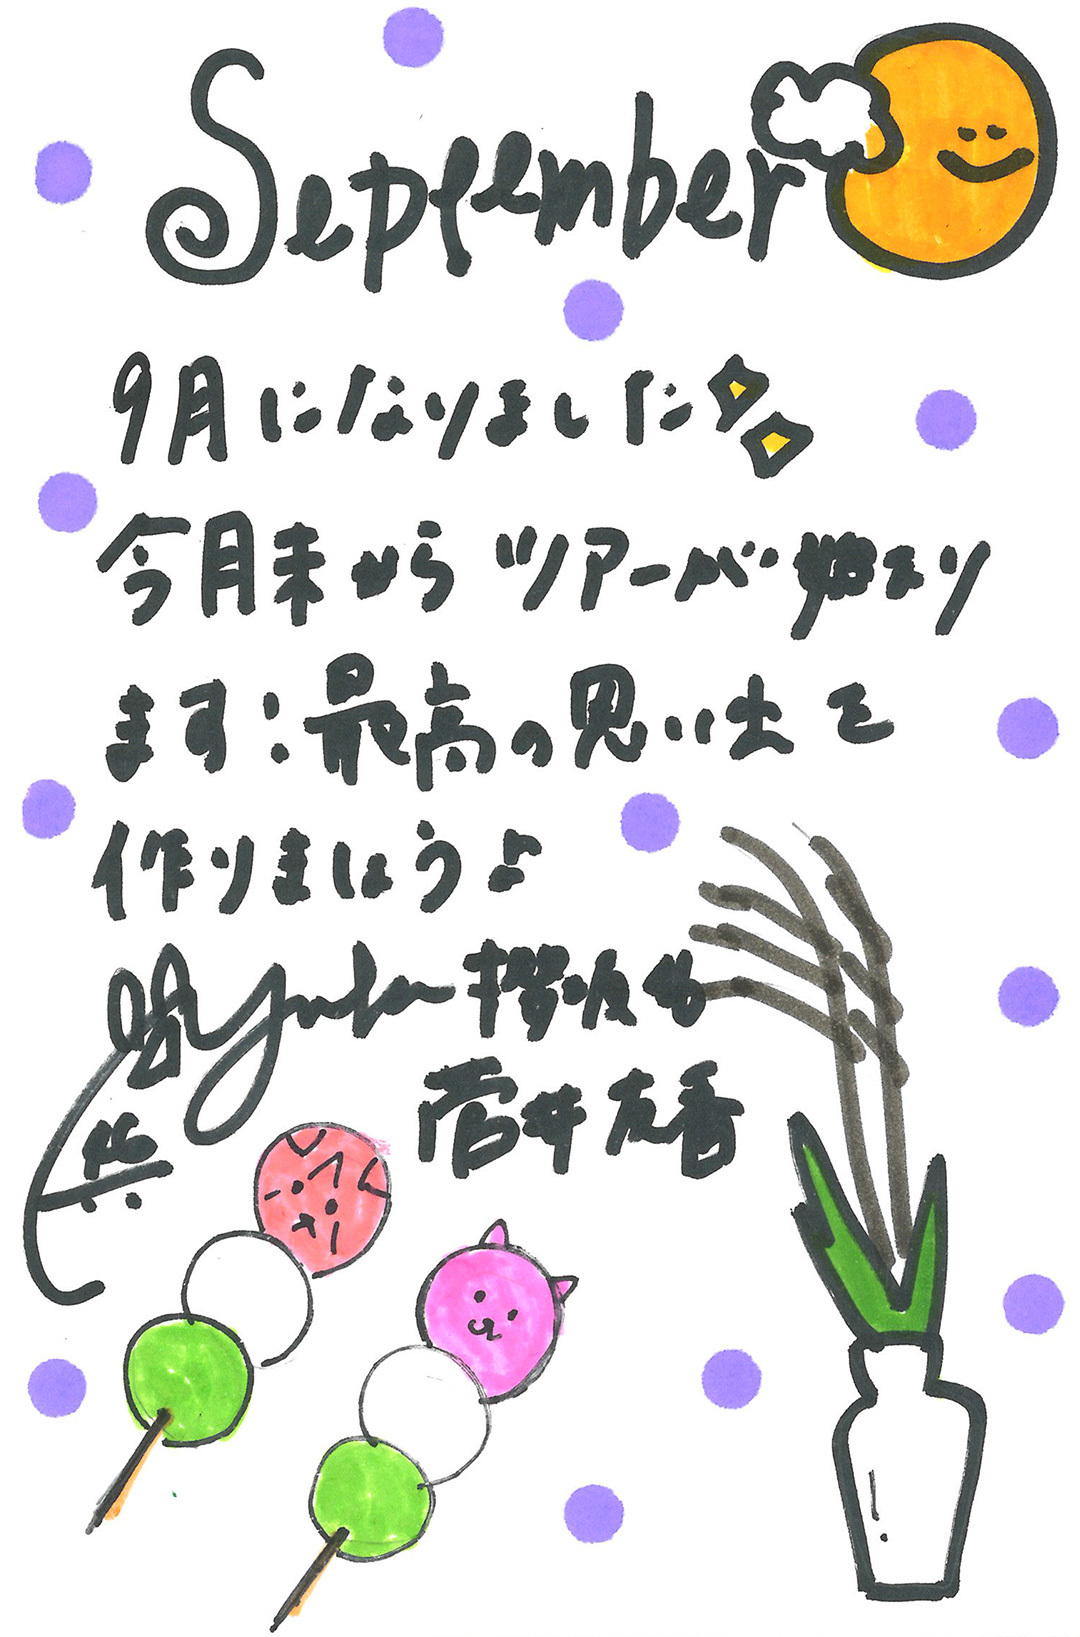 September
9月になりました
今月末からツアーが始まり
ます!最高の思い出を
作りましょう♪
Yuuka 櫻坂46
菅井友香